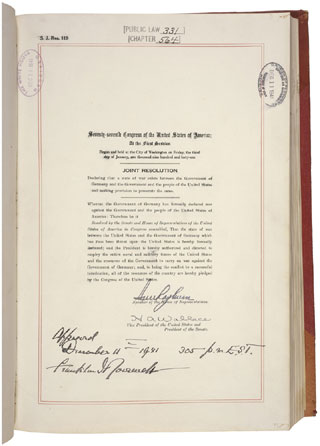 S. J. Res. 119
[PUBLIC LAW 331]
[CHAPTER 564]
Seventy-seventh Congress of the United States of America;
At the First Session
Begun and held at the City of Washington on Friday, the third
day of January, one thousand nine hundred and forty-one
JOINT RESOLUTION
Declaring that a state of war exists between the Government of
Germany and the Government and the people of the United States
and making provision to prosecute the same.
Whereas the Government of Germany has formally declared war
against the Government and the people of the United States of
America: Therefore be it
Resolved by the Senate and House of Representatives of the United
States of America in Congress assembled, That the state of war
between the United States and the Government of Germany which
has thus been thrust upon the United States is hereby formally
declared; and the President is hereby authorized and directed to
employ the entire naval and military forces of the United States
and the resources of the Government to carry on war against the
Government of Germany; and, to bring the conflict to a successful
termination, all of the resources of the country are hereby pledged
by the Congress of the United States.
Sam Rayburn
Speaker of the House of Representatives.
H. A. Wallace
Vice President of the United States and
President of the Senate.
Approved
December 11th 1941 3:05 p.m. E.S.T.
Franklin D. Roosevelt